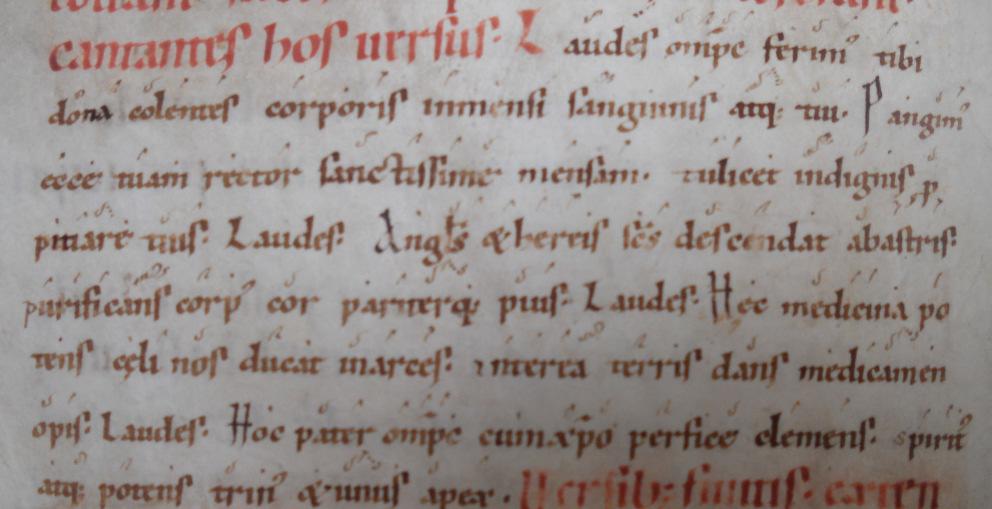 cantantes hos uersus. Laudes omp̄e ferim᷒ tibi
dona colentes corporis inmensi sanguinis atq; tui. Pangim᷒
ecce tuam rector sanctissime mensam. tulicet indignis p̱
pitiare tuis. Laudes. Angl̄s æthereis sc̄s descendat abastris.
purificans corp᷒ cor pariterq; pius. Laudes. Hec medicina po
tens cęli nos ducat inarces. interea terris dans medicamen
opis. Laudes. Hoc pater omp̄c cumxp̄o perfice clemens. spirit᷒
atq; potens trin᷒ &unus apex. Versib; finitis.